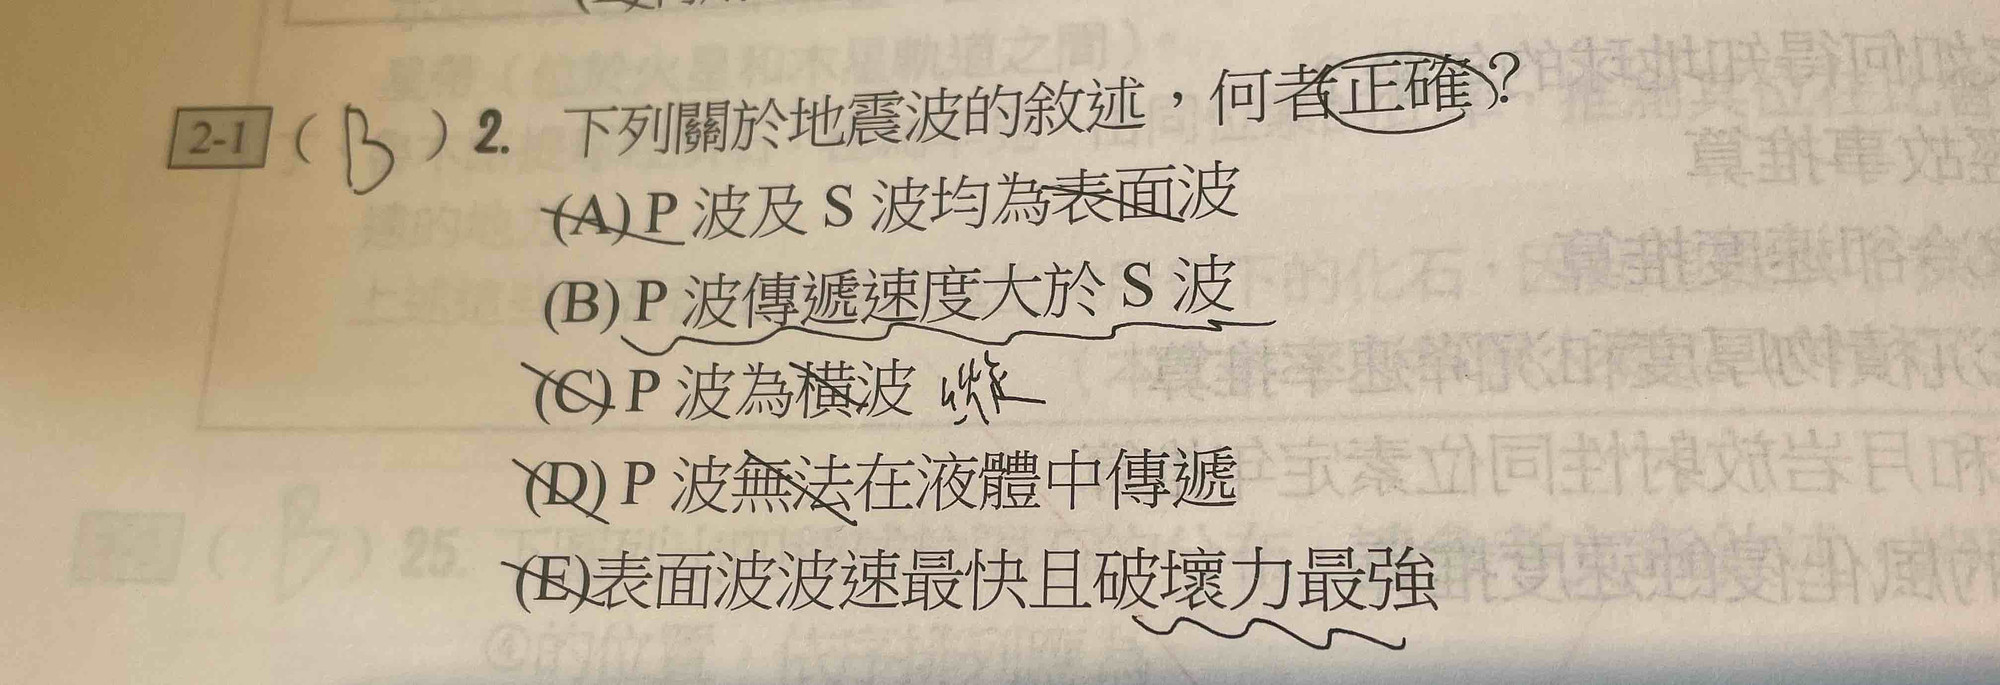 2-1 ( B ) 2. 下列關於地震波的敘述，何者正確？
(A) P 波及 S 波均為表面波
(B) P 波傳遞速度大於 S 波
(C) P 波為橫波 縱
(D) P 波無法在液體中傳遞
(E)表面波波速最快且破壞力最強